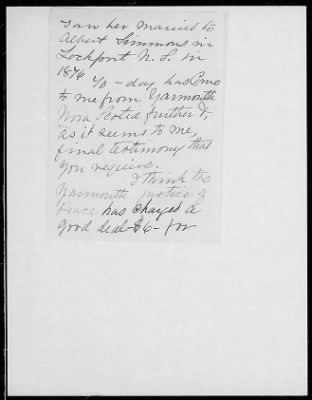 saw her married to
Albert Simmons in
Lockport N. S. in
1876 To-day has come
to me from Yarmouth
Nova Scotia further &,
as it seems to me,
final testimony that
you require.
I think the
Yarmouth Justice of
Peace has charged a
good deal - $6 - for